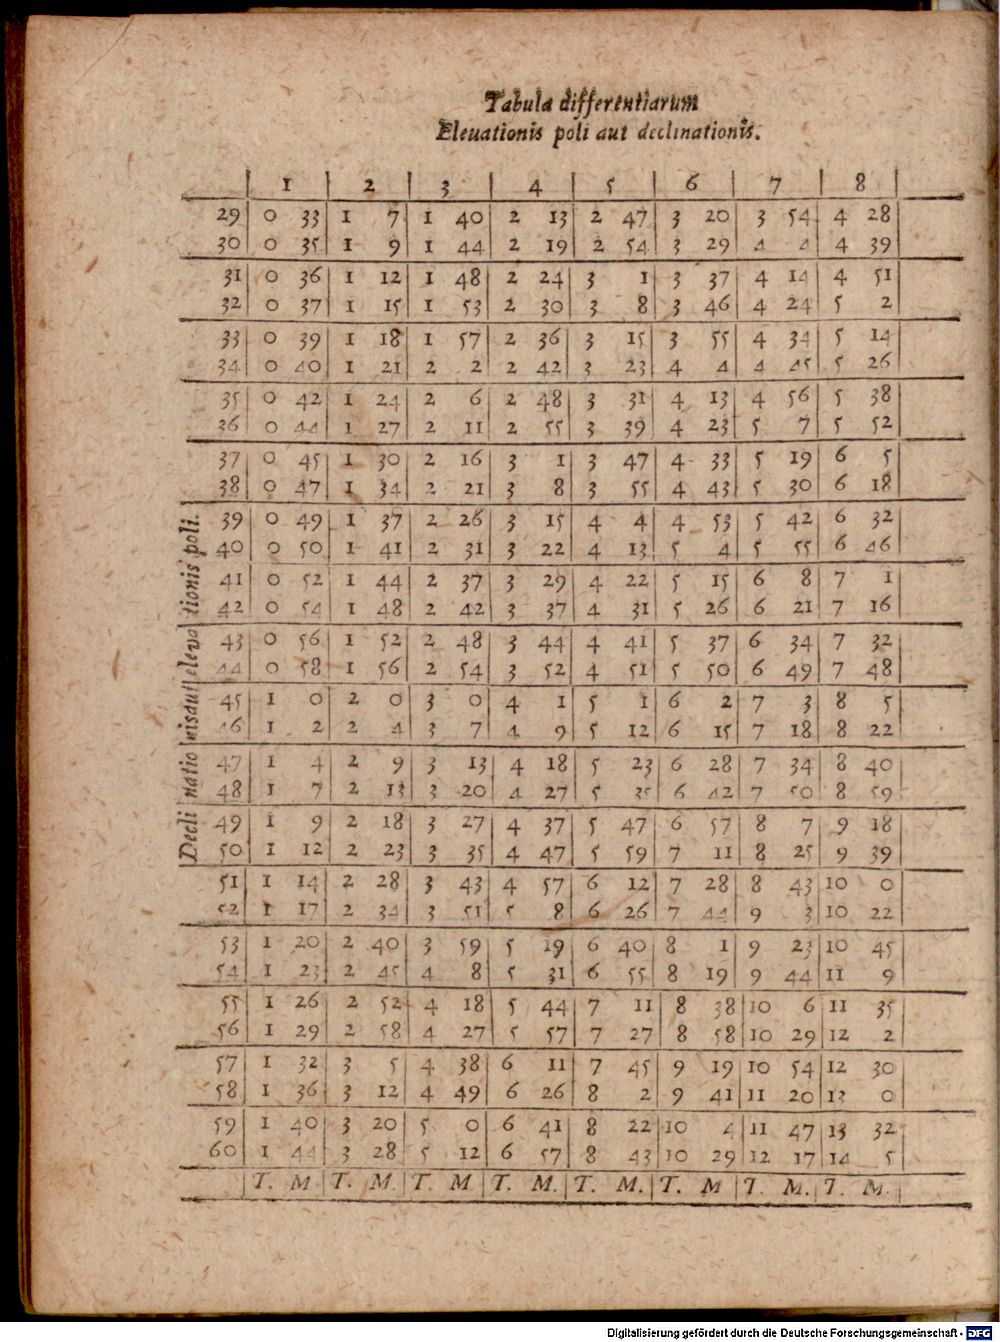 Tabula differentiarum
Eleuationis poli aut declinationis.
1 2 3 4 5 6 7 8
29 0 33 1 7 1 40 2 13 2 47 3 20 3 54 4 28
30 0 35 1 9 1 44 2 19 2 54 3 29 4 4 4 39
31 0 36 1 12 1 48 2 24 3 1 3 37 4 14 4 51
32 0 37 1 15 1 53 2 30 3 8 3 46 4 24 5 2
33 0 39 1 18 1 57 2 36 3 15 3 55 4 34 5 14
34 0 40 1 21 2 2 2 42 3 23 4 4 4 45 5 26
35 0 42 1 24 2 6 2 48 3 31 4 13 4 56 5 38
36 0 44 1 27 2 11 2 55 3 39 4 23 5 7 5 52
37 0 45 1 30 2 16 3 1 3 47 4 33 5 19 6 5
38 0 47 1 34 2 21 3 8 3 55 4 43 5 30 6 18
39 0 49 1 37 2 26 3 15 4 4 4 53 5 42 6 32
40 0 50 1 41 2 31 3 22 4 13 5 4 5 55 6 46
41 0 52 1 44 2 37 3 29 4 22 5 15 6 8 7 1
42 0 54 1 48 2 42 3 37 4 31 5 26 6 21 7 16
43 0 56 1 52 2 48 3 44 4 41 5 37 6 34 7 32
44 0 58 1 56 2 54 3 52 4 51 5 50 6 49 7 48
45 1 0 2 0 3 0 4 1 5 1 6 2 7 3 8 5
46 1 2 2 4 3 7 4 9 5 12 6 15 7 18 8 22
47 1 4 2 9 3 13 4 18 5 23 6 28 7 34 8 40
48 1 7 2 13 3 20 4 27 5 35 6 42 7 50 8 59
49 1 9 2 18 3 27 4 37 5 47 6 57 8 7 9 18
50 1 12 2 23 3 35 4 47 5 59 7 11 8 25 9 39
51 1 14 2 28 3 43 4 57 6 12 7 28 8 43 10 0
52 1 17 2 34 3 51 5 8 6 26 7 44 9 3 10 22
53 1 20 2 40 3 59 5 19 6 40 8 1 9 23 10 45
54 1 23 2 45 4 8 5 31 6 55 8 19 9 44 11 9
55 1 26 2 52 4 18 5 44 7 11 8 38 10 6 11 35
56 1 29 2 58 4 27 5 57 7 27 8 58 10 29 12 2
57 1 32 3 5 4 38 6 11 7 45 9 19 10 54 12 30
58 1 36 3 12 4 49 6 26 8 2 9 41 11 20 13 0
59 1 40 3 20 5 0 6 41 8 22 10 4 11 47 13 32
60 1 44 3 28 5 12 6 57 8 43 10 29 12 17 14 5
T. M T. M. T. M T. M. T. M. T. M T. M. T. M.
Decli natio nisaut eleva tionis poli.
Digitalisierung gefördert durch die Deutsche Forschungsgemeinschaft - DFG